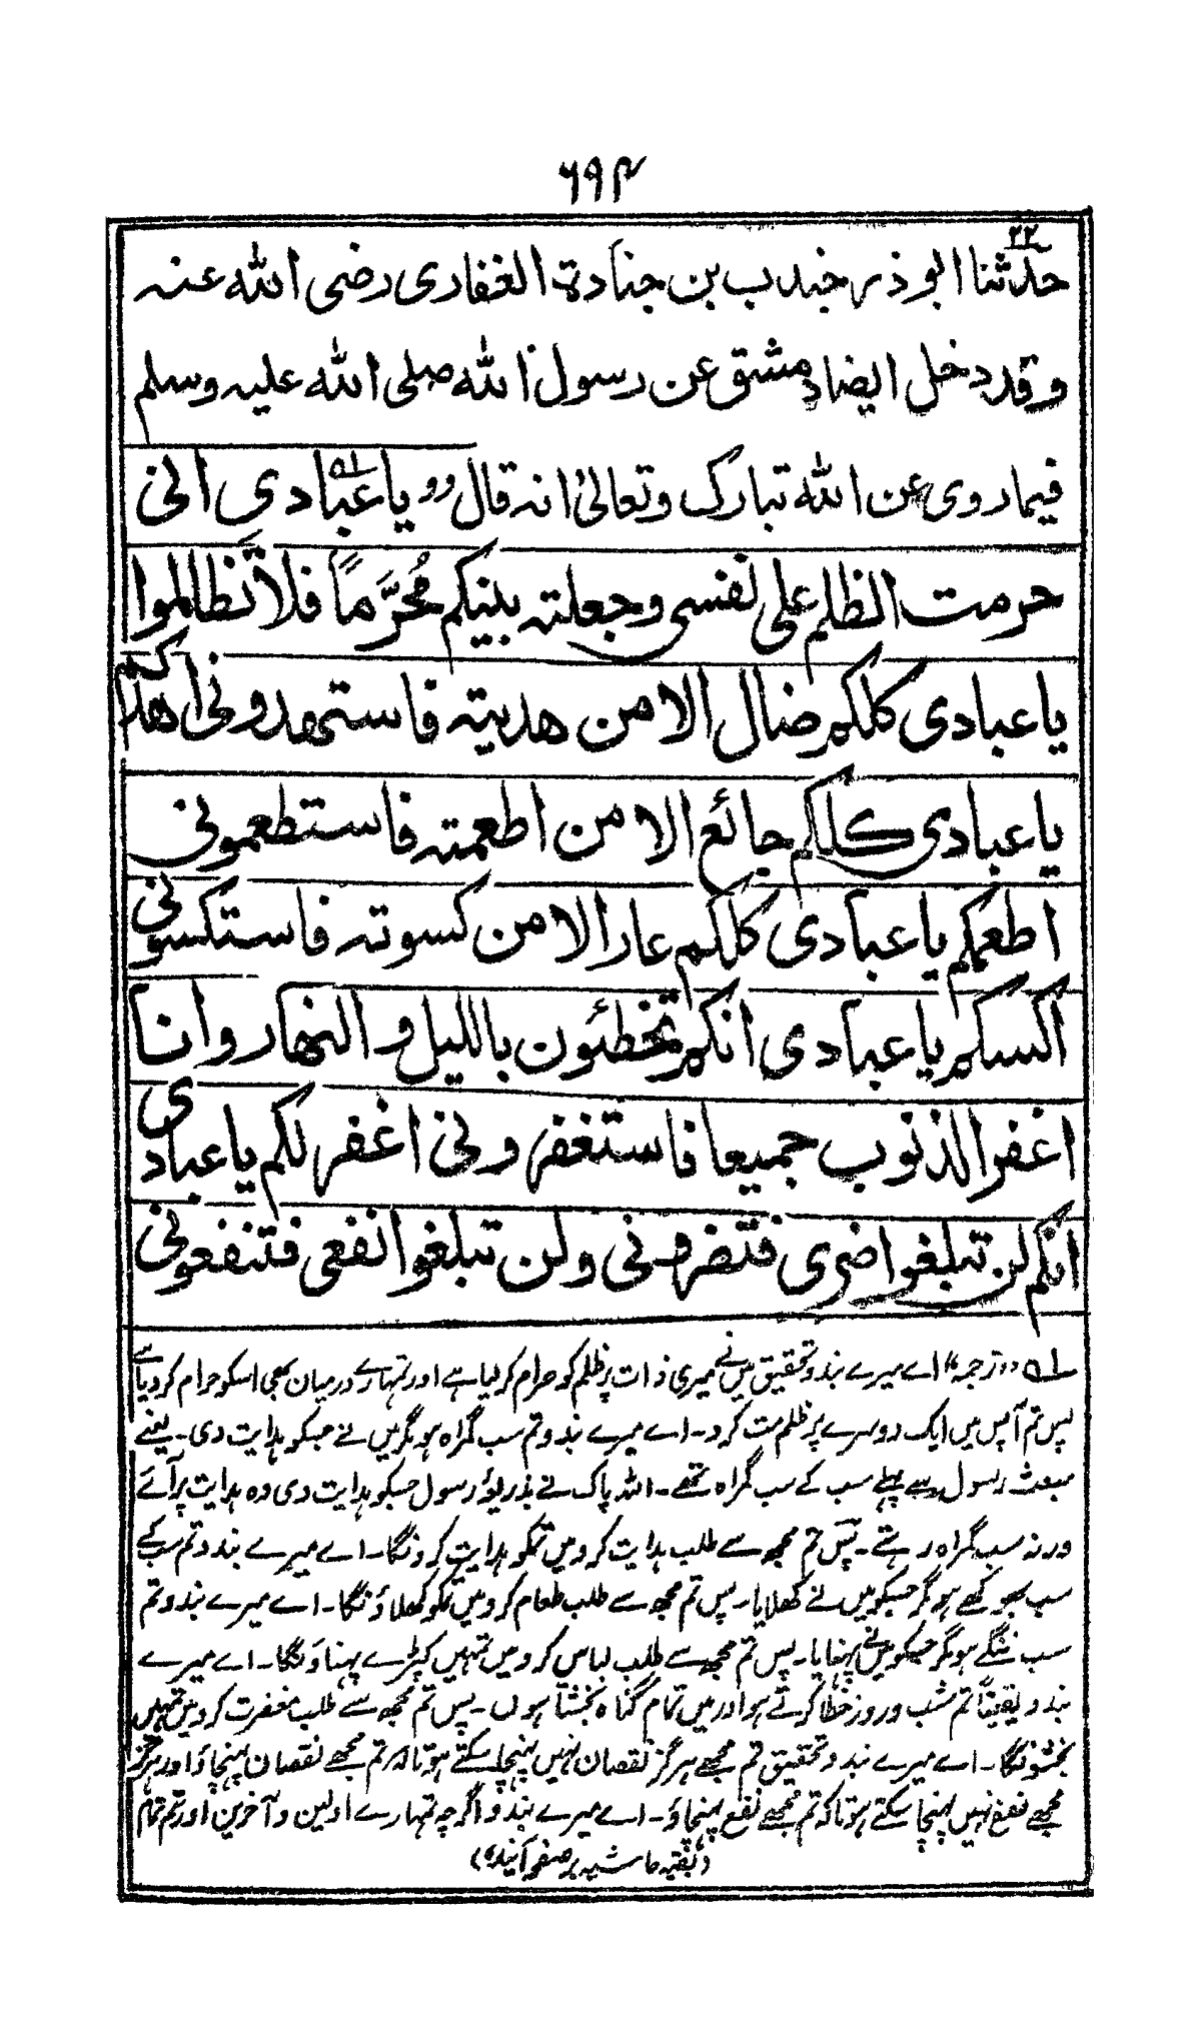 ۶۹۴
۲۲
حدثنا ابو ذر جندب بن جنادة الغفاری رضی الله عنه
وقد دخل ایضا دمشق عن رسول الله صلی الله علیه وسلم
فیما روی عن الله تبارک وتعالیٰ انه قال وو یا عبادی ۵۱؎ انی
حرمت الظلم علی نفسی وجعلته بینکم مُحَرَّماً فلا تَظالموا
یا عبادی کلکم ضال الا من هدیته فاستهدونی اهدکم
یا عبادی کلکم جائع الا من اطعمته فاستطعمونی
اطعمکم یا عبادی کلکم عار الا من کسوته فاستکسونی
اکسکم یا عبادی انکم تخطئون باللیل والنهار وانا
اغفر الذنوب جمیعا فاستغفرونی اغفر لکم یا عبادی
انکم لن تبلغوا ضری فتضرونی ولن تبلغوا نفعی فتنفعونی
۵۱؎ ''ترجمہ'' اے میرے بندو تحقیق میں نے میری ذات پر ظلم کو حرام کرلیا ہے اور تمہارے درمیان بھی اسکو حرام کردیا ہے
پس تم آپس میں ایک دوسرے پر ظلم مت کرو۔ اے میرے بندو تم سب گمراہ ہو مگر میں نے جسکو ہدایت دی۔ یعنے
بعثت رسول سے پہلے سب کے سب گمراہ تھے۔ اللہ پاک نے بذریعۂ رسول جسکو ہدایت دی وہ ہدایت پر آئے
ورنہ سب گمراہ رہتے۔ پس تم مجھ سے طلب ہدایت کرو میں تمکو ہدایت کرونگا۔ اے میرے بندو تم سب کے
سب بھوکھے ہو مگر جسکو میں نے کھلایا۔ پس تم مجھ سے طلب طعام کرو میں تمکو کھلاؤنگا۔ اے میرے بندو تم
سب ننگے ہو مگر جسکو میں نے پہنایا۔ پس تم مجھ سے طلب لباس کرو میں تمہیں کپڑے پہناؤنگا۔ اے میرے
بندو یقیناً تم شب و روز خطا کرتے ہو اور میں تمام گناہ بخشتا ہوں۔ پس تم مجھ سے طلب مغفرت کرو میں تمہیں
بخشونگا۔ اے میرے بندو تحقیق تم مجھے ہرگز نقصان نہیں پہنچا سکتے ہو تاکہ تم مجھے نقصان پہنچاؤ اور ہرگز
مجھے نفع نہیں پہنچا سکتے ہو تاکہ تم مجھے نفع پہنچاؤ۔ اے میرے بندو اگرچہ تمہارے اولین و آخرین اور تم تمام
(بقیہ حاشیہ بر صفحہ آئیندہ)